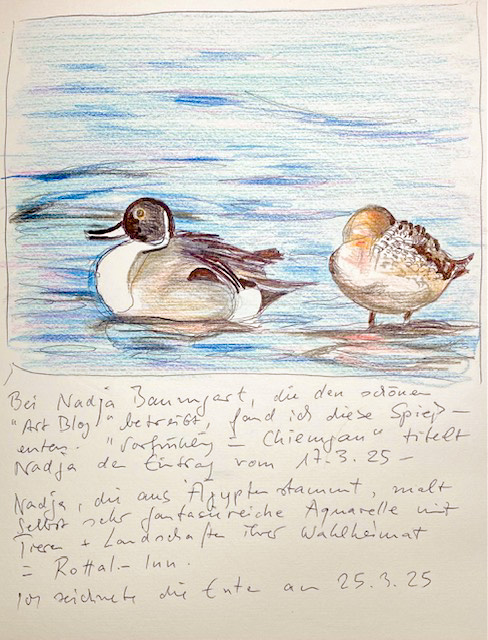 Bei Nadja Baumgart, die den schönen
"Art Blog" betreibt, fand ich diese Spieß-
enten. "Vorfrühling = Chiemgau" titelt
Nadja den Eintrag vom 17.3.25 -
Nadja, die aus Ägypten stammt, malt
selbst sehr fantasiereiche Aquarelle mit
Tieren + Landschaften ihrer Wahlheimat
= Rottal-Inn.
Ich zeichnete die Enten am 25.3.25